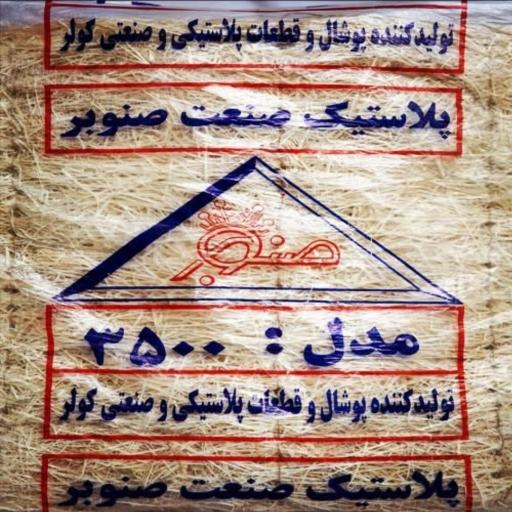 تولیدکننده پوشال و قطعات پلاستیکی و صنعتی کولر
پلاستیک صنعت صنوبر
صنوبر
مدل : ۳۵۰۰
تولیدکننده پوشال و قطعات پلاستیکی و صنعتی کولر
پلاستیک صنعت صنوبر